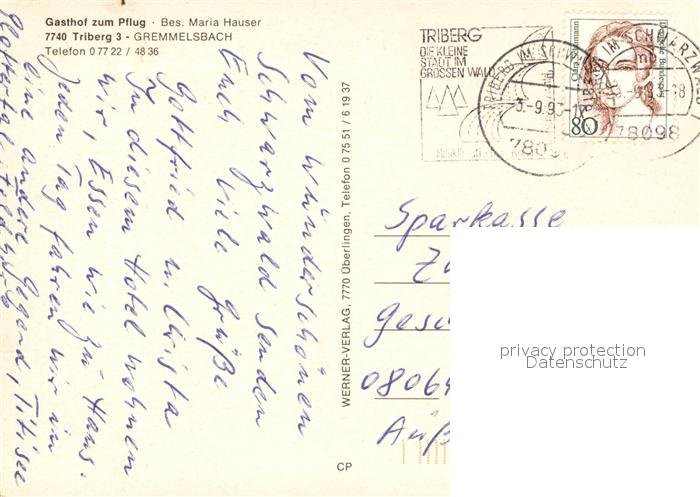 Gasthof zum Pflug · Bes. Maria Hauser
7740 Triberg 3 - GREMMELSBACH
Telefon 0 77 22 / 48 36
Vom wunderschönen
Schwarzwald senden
Euch viele Grüße
Gottfried u. Christa
In diesem Hotel wohnen
wir, Essen wie zu Haus.
Jeden Tag fahren wir in
eine andere Gegend, Titisee
WERNER-VERLAG, 7770 Überlingen, Telefon 0 75 51 / 6 19 37
CP
TRIBERG
DIE KLEINE
STADT IM
GROSSEN WALD
TRIBERG IM SCHWARZWALD
3.-9.93-18
78098
mb
78098
Deutsche Bundespost
80
Sparkasse
08064
privacy protection
Datenschutz